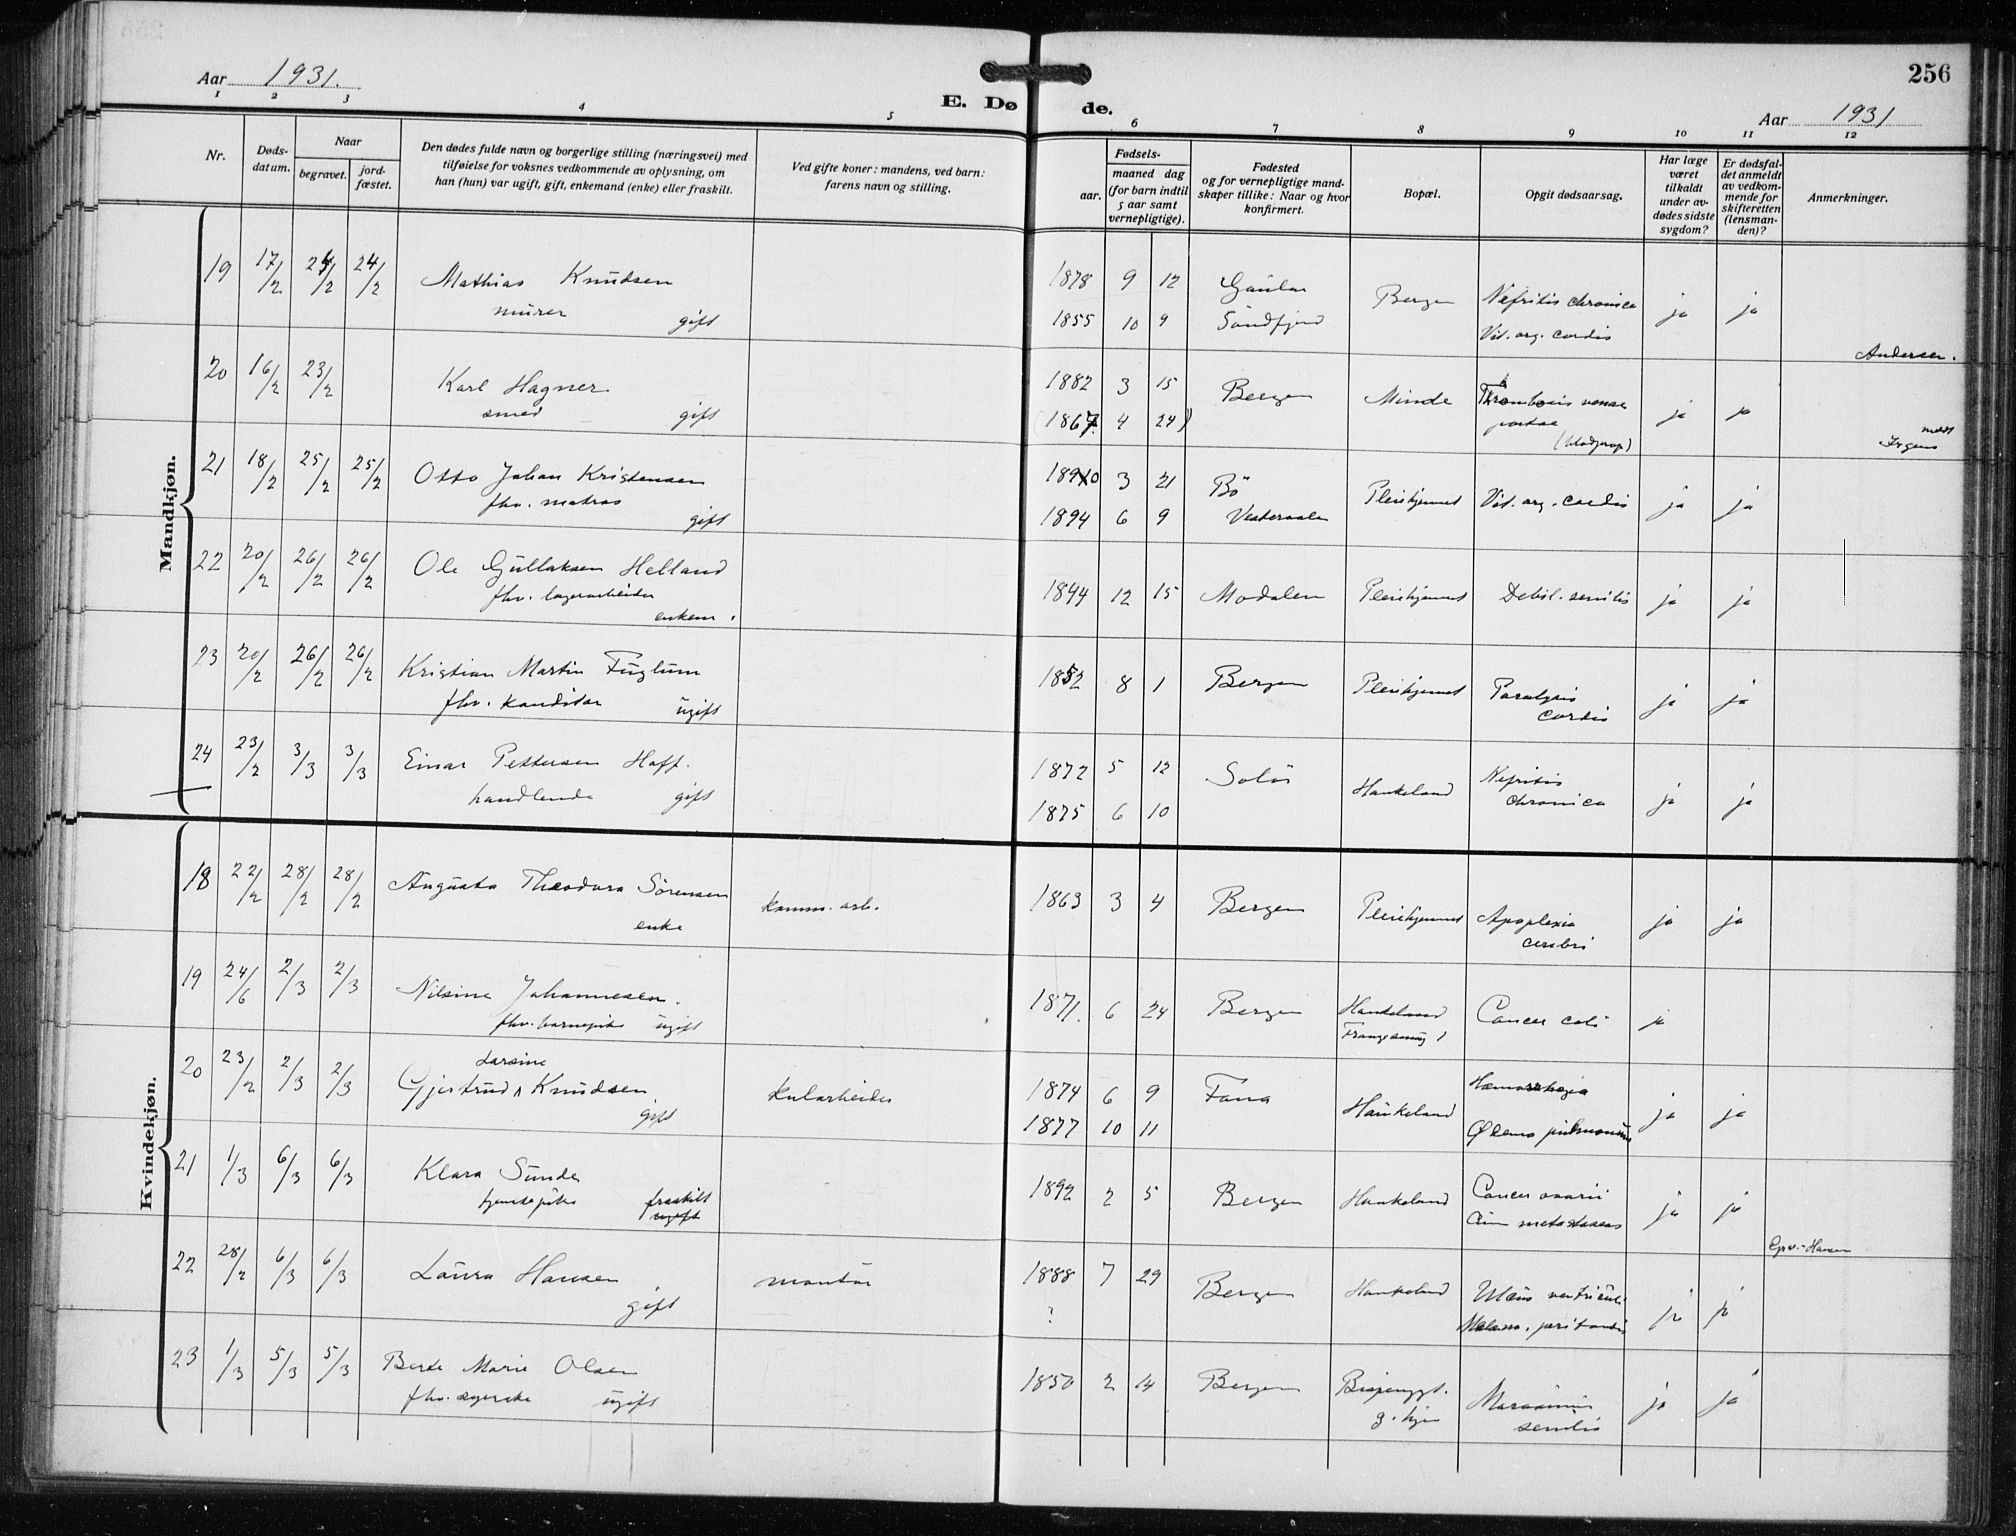 256
Aar 1931.
E. Døde.
Aar 1931
1 2 3 4 5 6 7 8 9 10 11 12
Nr.
Døds-
datum.
Naar
begravet.
jord-
fæstet.
Den dødes fulde navn og borgerlige stilling (næringsvei) med
tilføielse for voksnes vedkommende av oplysning, om
han (hun) var ugift, gift, enkemand (enke) eller fraskilt.
Ved gifte koner: mandens, ved barn:
farens navn og stilling.
Fødsels-
aar.
maaned dag
(for barn indtil
5 aar samt
vernepligtige).
Fødested
og for vernepligtige mand-
skaper tillike: Naar og hvor
konfirmert.
Bopæl.
Opgit dødsaarsag.
Har læge
været
tilkaldt
under av-
dødes sidste
sygdom?
Er dødsfal-
det anmeldt
av vedkom-
mende for
skifteretten
(lensman-
den)?
Anmerkninger.
Mandkjøn.
19 17/2 24/2 24/2 Mathias Knudsen 1878 9 12 Gaular Bergen Nefritis chronica ja ja
murer gift 1855 10 9 Sundfjord Vit. org. cordis
Andersen.
20 16/2 23/2 Karl Hagner 1882 3 15 Bergen Minde Thrombosis venae ja ja
smed gift (1867. 4 24) portae
(blodprop)
Irgens
21 18/2 25/2 25/2 Otto Johan Kristensen 3 21 Bö Pleiehjemmet Vit. org. cordis ja ja
fhv. matros gift 1894 6 9 Vesteraalen
22 20/2 26/2 26/2 Ole Gullaksen Helland 1894 12 15 Modalen Pleiehjemmet Debil. senilis ja ja
fhv. lagerarbeider
enkem.
23 20/2 26/2 26/2 Kristian Martin Fuglum 1852 8 1 Bergen Pleiehjemmet Paralysis ja ja
fhv. konditor ugift cordis
24 23/2 3/3 3/3 Einar Pettersen Hoff. 1872 5 12 Solör Haukeland Nefritis ja ja
handlende gift 1875 6 10 chronica
Kvindekjøn.
18 22/2 28/2 28/2 Augusta Theodora Sörensen komm. arb. 1863 3 4 Bergen Pleiehjemmet Apoplexia ja ja
enke cerebri
19 24/6 2/3 2/3 Nilsine Johannesen. 1871. 6 24 Bergen Haukeland Cancer coli ja
fhv. barnepike ugift
Larsine
20 23/2 2/3 2/3 Gjertrud Knudsen kularbeider 1874 6 9 Fana Haukeland ja ja
gift 1877 10 11 Ødema pulmonum
21 1/3 6/3 6/3 Klara Sunde 1892 2 5 Bergen Haukeland Cancer ovarii ja ja
tjenestepike fraskilt
ugift
cum metastases
Hansen
22 28/2 6/3 6/3 Laura Hansen montör 1888 7 29 Bergen Haukeland Ulcus ventriculi ja ja
gift ?
23 1/3 5/3 5/3 Berte Marie Olsen 1850 2 14 Bergen Marasmus ja ja
fhv. syerske ugift senilis